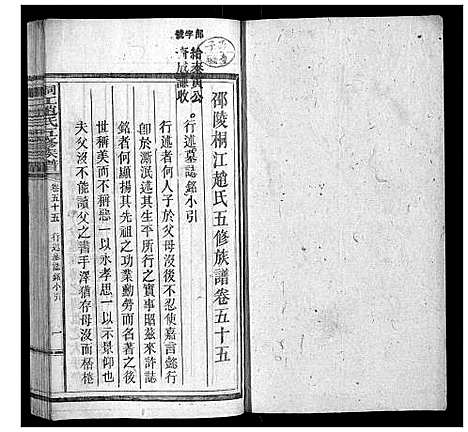 邵字號
給來寅公
房展謙收
邵陵桐江趙氏五修族譜卷五十五
行述墓誌銘小引
行述者何人子於父母沒後不忍使嘉言懿行
即於澌泯述其生平所行之實事昭茲來許誌
銘者何顯揚其先祖之功業勳勞而名著之後
世稱美而不稱惡一以永孝思一以示景仰也
夫父沒不能讀父之書手澤猶存母沒而桮棬
桐江趙氏五修族譜
卷五十五
行述墓誌銘小引
一